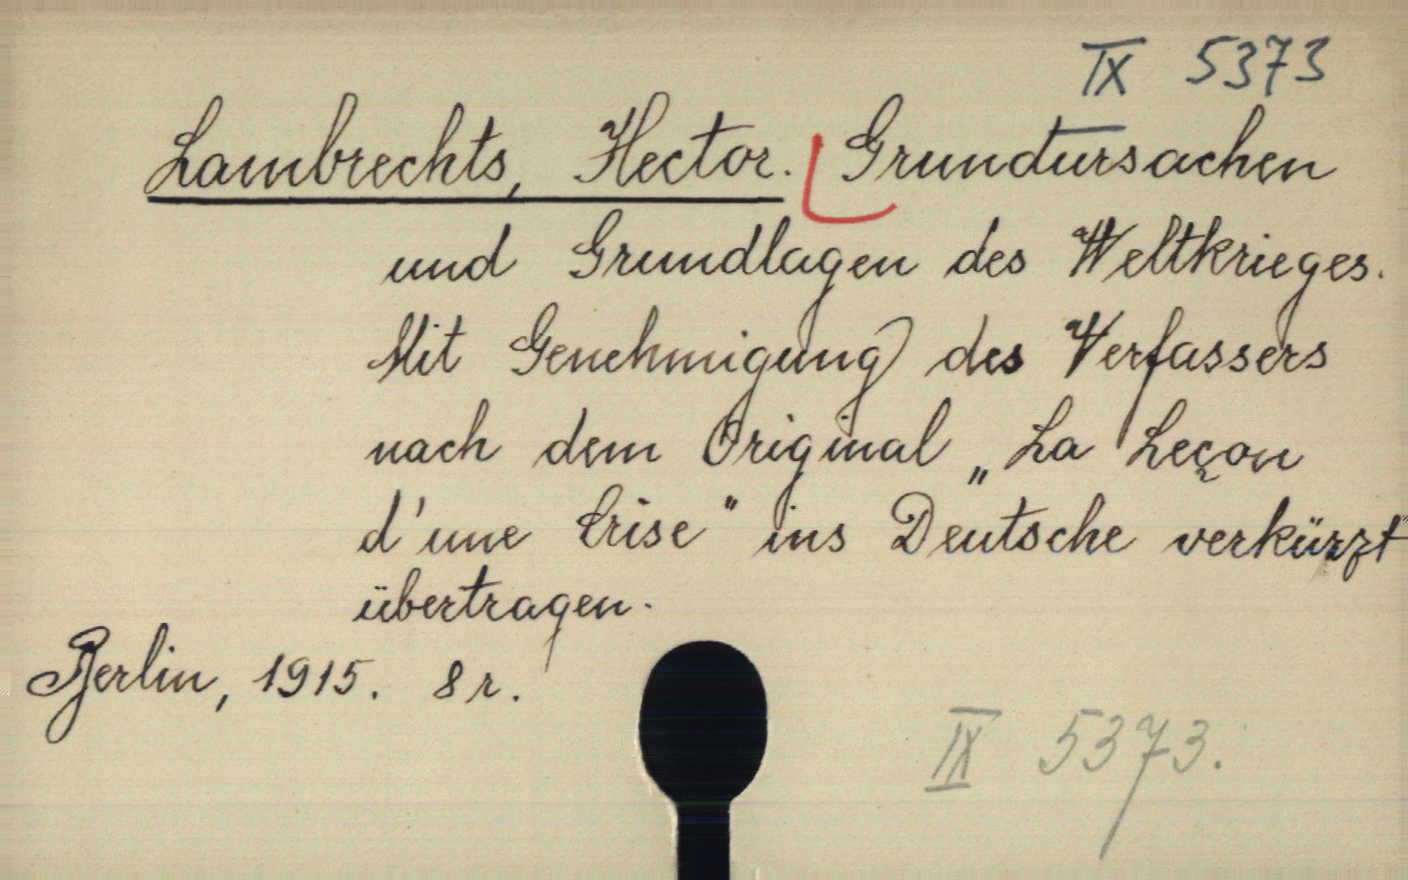 IX 5373
Lambrechts, Hector. Grundursachen
und Grundlagen des Weltkrieges.
Mit Genehmigung des Verfassers
nach dem Original „La Leçon
d'une Crise" ins Deutsche verkürzt
übertragen.
Berlin, 1915. 8 r.
IX 5373.